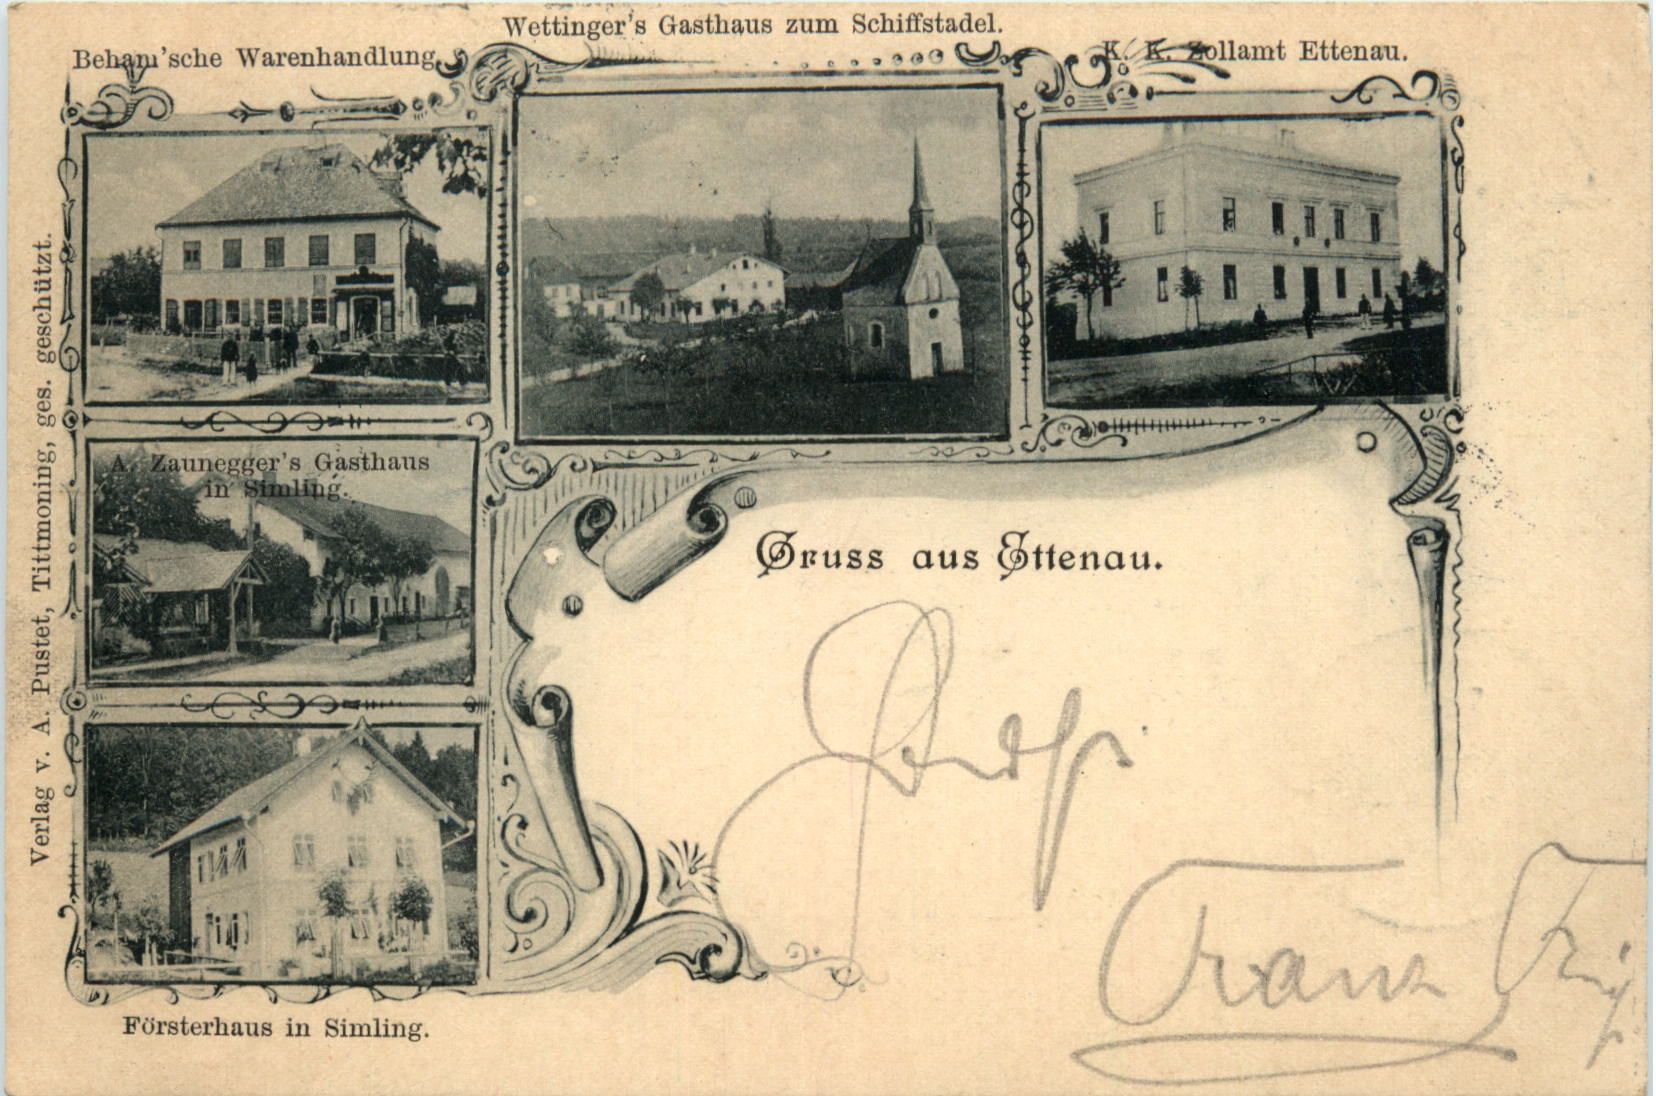 Wettinger's Gasthaus zum Schiffstadel.
Beham'sche Warenhandlung.
K. K. Zollamt Ettenau.
A. Zaunegger's Gasthaus
in Simling.
Gruss aus Ettenau.
Franz
Försterhaus in Simling.
Verlag v. A. Pustet, Tittmoning, ges. geschützt.